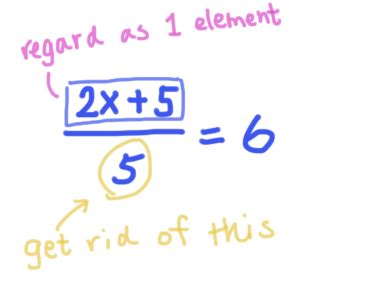 regard as 1 element
2x+5
= 6
5
get rid of this